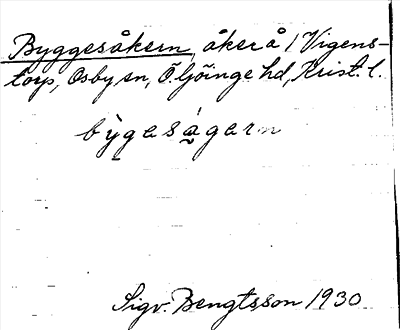 Byggesåkern, åker å 1 Vigens-
torp, Osby sn, Ö Göinge hd, Krist. l.
bỳgesågarn
Sigv. Bengtsson 1930